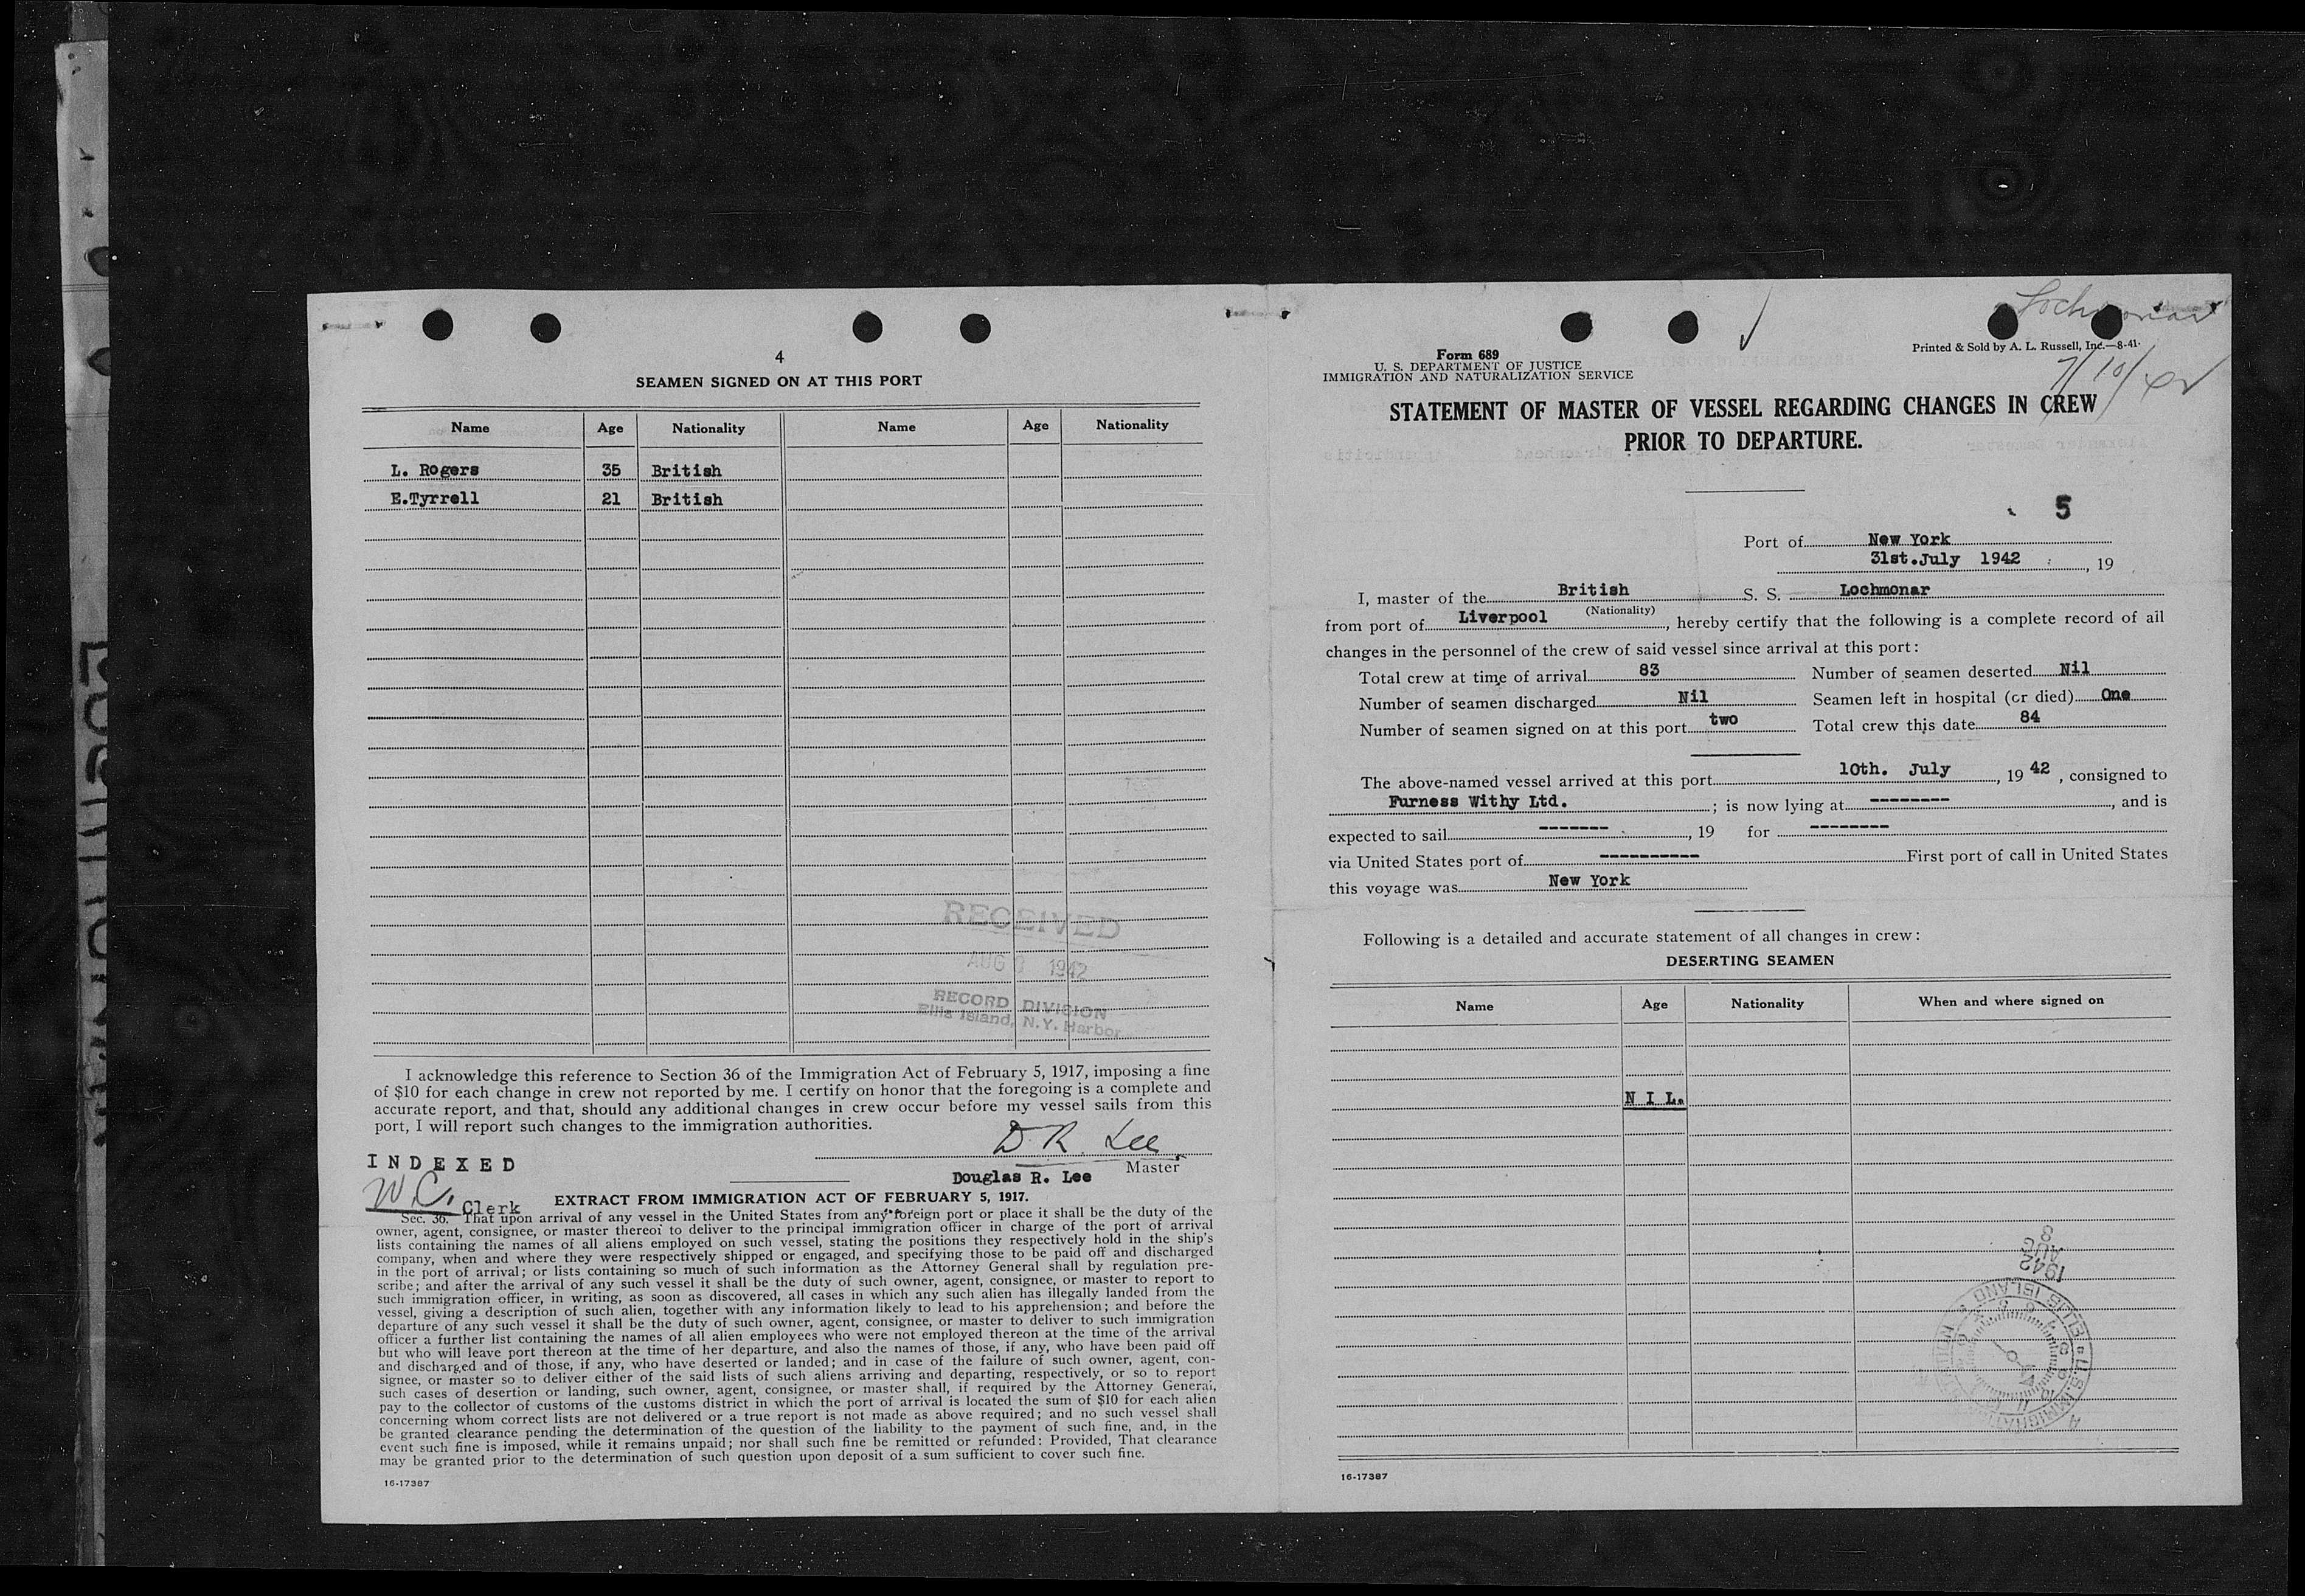 4
SEAMEN SIGNED ON AT THIS PORT
Name Age Nationality Name Age Nationality
L. Rogers 35 British
E.Tyrrell 21 British
RECEIVED
AUG 3 1942
RECORD DIVISION
Ellis Island, N.Y. Harbor
I acknowledge this reference to Section 36 of the Immigration Act of February 5, 1917, imposing a fine
of $10 for each change in crew not reported by me. I certify on honor that the foregoing is a complete and
accurate report, and that, should any additional changes in crew occur before my vessel sails from this
port, I will report such changes to the immigration authorities.
D. R. Lee
INDEXED
Master
Douglas R. Lee
W.C. Clerk
EXTRACT FROM IMMIGRATION ACT OF FEBRUARY 5, 1917.
Sec. 36. That upon arrival of any vessel in the United States from any foreign port or place it shall be the duty of the
owner, agent, consignee, or master thereof to deliver to the principal immigration officer in charge of the port of arrival
lists containing the names of all aliens employed on such vessel, stating the positions they respectively hold in the ship's
company, when and where they were respectively shipped or engaged, and specifying those to be paid off and discharged
in the port of arrival; or lists containing so much of such information as the Attorney General shall by regulation pre-
scribe; and after the arrival of any such vessel it shall be the duty of such owner, agent, consignee, or master to report to
such immigration officer, in writing, as soon as discovered, all cases in which any such alien has illegally landed from the
vessel, giving a description of such alien, together with any information likely to lead to his apprehension; and before the
departure of any such vessel it shall be the duty of such owner, agent, consignee, or master to deliver to such immigration
officer a further list containing the names of all alien employees who were not employed thereon at the time of the arrival
but who will leave port thereon at the time of her departure, and also the names of those, if any, who have been paid off
and discharged and of those, if any, who have deserted or landed; and in case of the failure of such owner, agent, con-
signee, or master so to deliver either of the said lists of such aliens arriving and departing, respectively, or so to report
such cases of desertion or landing, such owner, agent, consignee, or master shall, if required by the Attorney General,
pay to the collector of customs of the customs district in which the port of arrival is located the sum of $10 for each alien
concerning whom correct lists are not delivered or a true report is not made as above required; and no such vessel shall
be granted clearance pending the determination of the question of the liability to the payment of such fine, and, in the
event such fine is imposed, while it remains unpaid; nor shall such fine be remitted or refunded: Provided, That clearance
may be granted prior to the determination of such question upon deposit of a sum sufficient to cover such fine.
16-17387
Lochmonar
Form 689
U. S. DEPARTMENT OF JUSTICE
IMMIGRATION AND NATURALIZATION SERVICE
Printed & Sold by A. L. Russell, Inc.—8-41.
7/10/42
STATEMENT OF MASTER OF VESSEL REGARDING CHANGES IN CREW
PRIOR TO DEPARTURE.
5
Port of New York
31st.July 1942, 19
I, master of the British S. S. Lochmonar
(Nationality)
from port of Liverpool, hereby certify that the following is a complete record of all
changes in the personnel of the crew of said vessel since arrival at this port:
Total crew at time of arrival 83 Number of seamen deserted Nil
Number of seamen discharged Nil Seamen left in hospital (or died) One
Number of seamen signed on at this port two Total crew this date 84
The above-named vessel arrived at this port 10th. July, 19 42, consigned to
Furness Withy Ltd.; is now lying at --------, and is
expected to sail -------, 19 for --------
via United States port of ---------- First port of call in United States
this voyage was New York
Following is a detailed and accurate statement of all changes in crew:
DESERTING SEAMEN
Name Age Nationality When and where signed on
N I L.
1942
AUG
ELLIS ISLAND
U.S. IMMIGRATION
16-17387